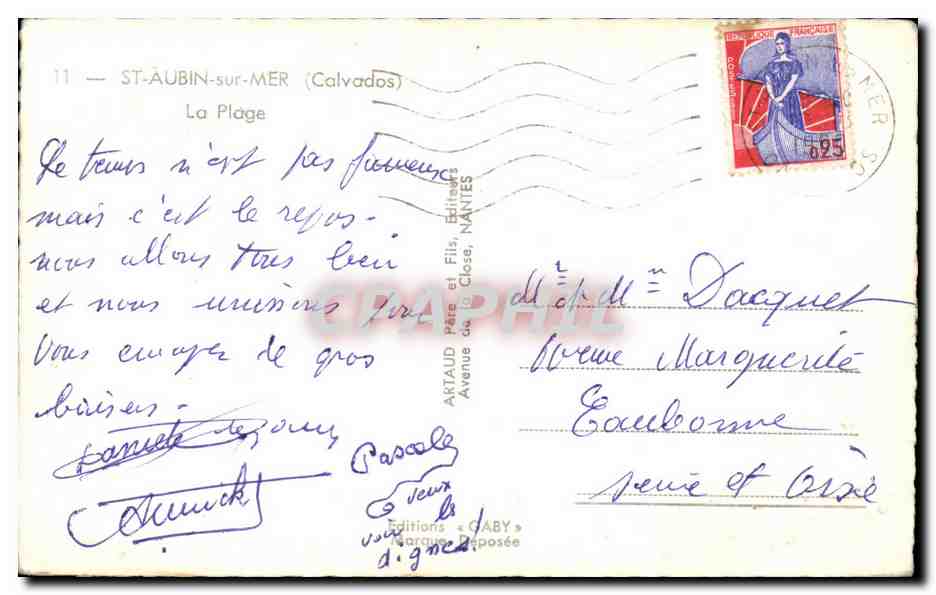 11 — ST-AUBIN-sur-MER (Calvados)
La Plage
Le temps n'est pas fameux
mais c'est le repos -
nous allons tous bien
et nous unissons pour
vous envoyer de gros
baisers -
Annick
Pascale
veux
le
voir
dignes!
ARTAUD Père et Fils, Editeurs
Avenue de la Close, NANTES
Editions « GABY »
Marque Déposée
REPUBLIQUE FRANÇAISE
POSTES
0,25
MER
CPAPHIL
Mr et Mme Dacquet
rue Marguerite
Eaubonne
Seine et Oise